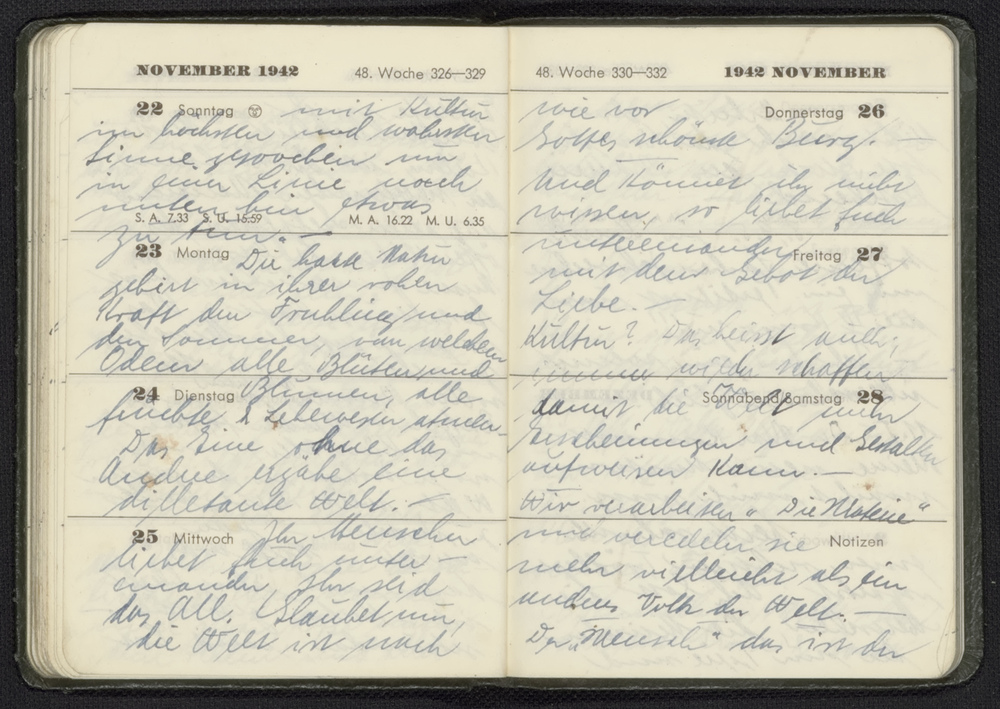 NOVEMBER 1942 48. Woche 326—329
22 Sonntag mit Kultur
im höchsten und wahrsten
Sinne gesprochen um
in einer Linie nach
unten hin etwas
S. A. 7.33 S. U. 15.59 M. A. 16.22 M. U. 6.35
zu tun" —
23 Montag Die harte Natur
gebirt in ihrer rohen
Kraft den Frühling und
den Sommer, von welchem
Odem alle Blüten und
24 Dienstag Blumen, alle
früchte & Lebewesen atmen—
Das Eine ohne das
Andere ergäbe eine
dilletante Welt. —
25 Mittwoch Ihr Menschen
liebet Euch unter—
einander, Ihr seid
das All. Glaubet nur,
die Welt ist nach
48. Woche 330—332 1942 NOVEMBER
wie vor Donnerstag 26
Gottes schönste Burg. —
Und könnet ihr nicht
wissen, so liebet Euch
untereinander Freitag 27
mit dem Gebot der
Liebe. —
Kultur? Das heisst auch,
immer wieder schaffen
damit die Welt mehr Sonnabend/Samstag 28
Erscheinungen und Gestalten
aufweisen kann. —
Wir verarbeiten „Die Materie"
und veredeln sie Notizen
mehr vielleicht als ein
anderes Volk der Welt. —
Der „Mensch" das ist der